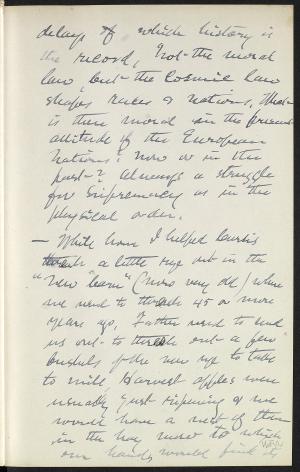 delays of, which history is
the record, Not the moral
law, but the Cosmic law
shapes races & nations. What
is there moral in the present
attitude of the European
Nations? now or in the
past? always a struggle
for supremacy as in the
physical order.
— While here I helped Curtis
a little rye out in the
"new barn" (now very old) where
we used to thresh 45 or more
years ago. Father used to send
us out to thresh out a few
bushels of the new rye to take
to mill. Harvest apples were
usually just ripening & we
would have a nest of them
in the hay mow to which
our hands would find its